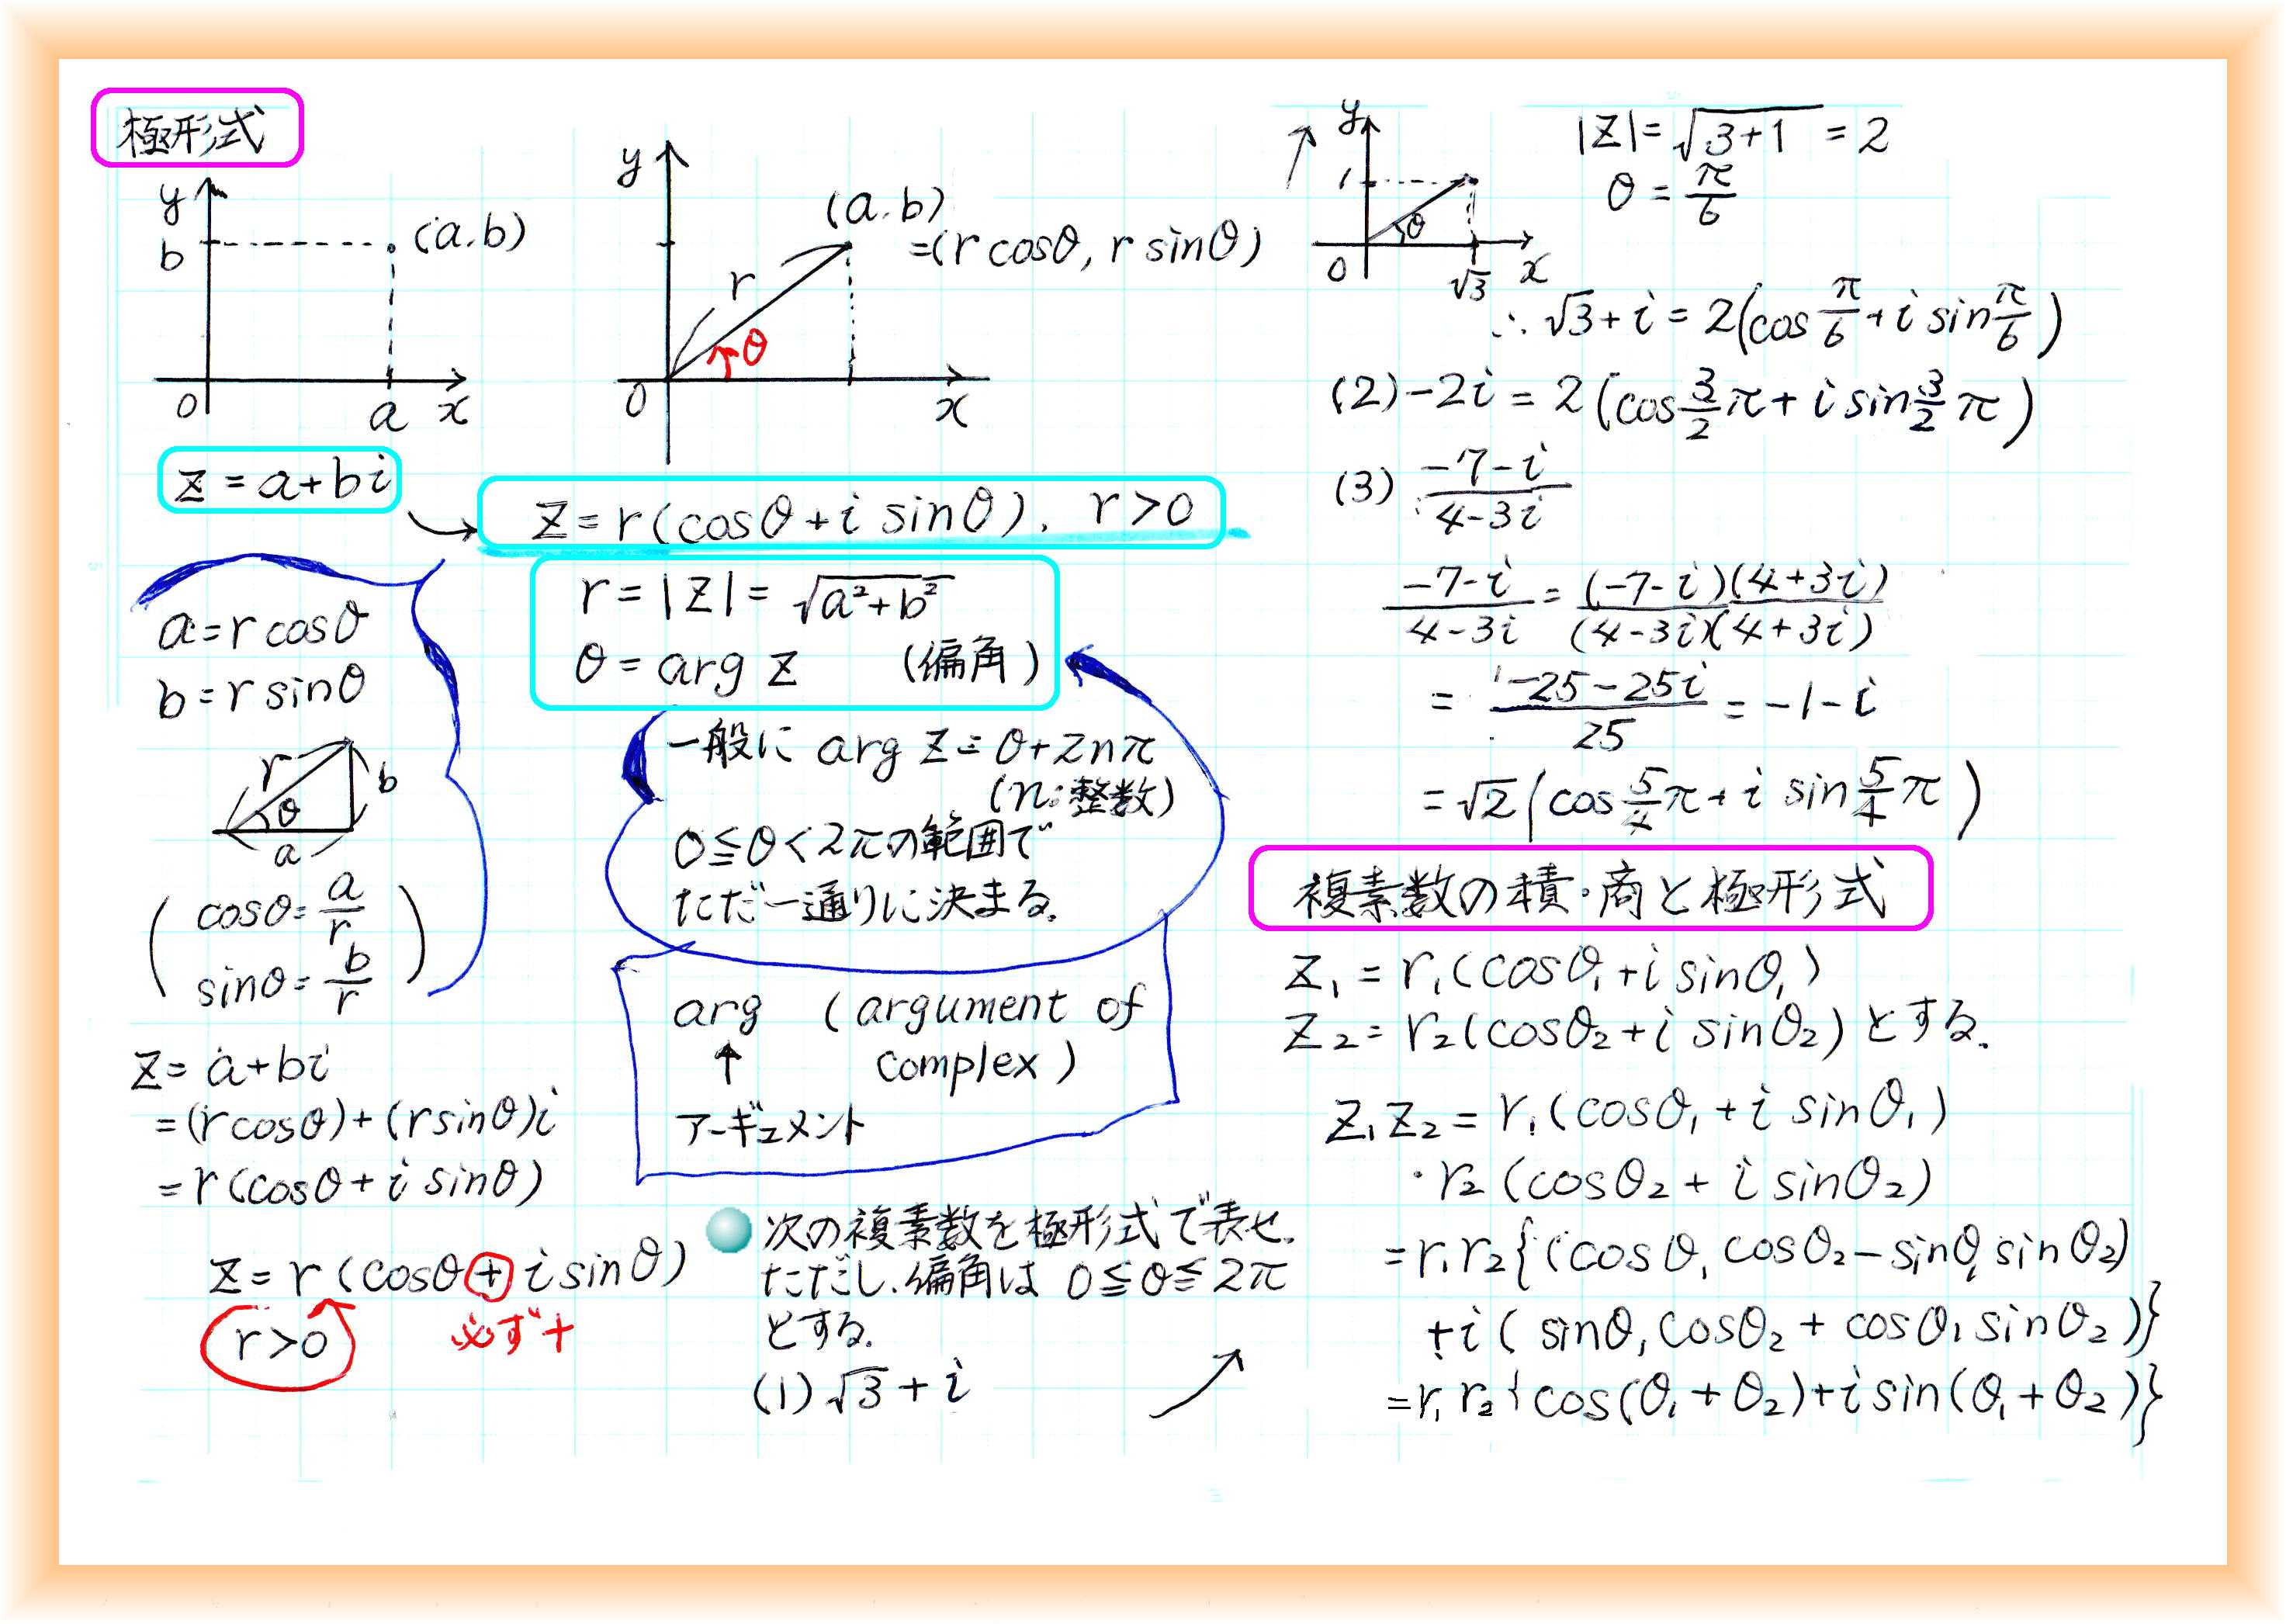 極形式
y
b
(a.b)
0
a
x
y
(a.b)
=(r cosθ, r sinθ)
r
θ
0
x
z = a+bi
z=r(cosθ+i sinθ). r>0
r=|z|=√a²+b²
θ=arg z (偏角)
a=r cosθ
b=r sinθ
r
b
θ
a
cosθ=a/r
sinθ=b/r
一般に arg z=θ+2nπ
(n:整数)
0≦θ<2πの範囲で
ただ一通りに決まる.
arg (argument of
↑ complex)
アーギュメント
z=a+bi
=(r cosθ)+(r sinθ)i
=r(cosθ+i sinθ)
z=r(cosθ+i sinθ)
r>0 必ず+
次の複素数を極形式で表せ.
ただし.偏角は 0≦θ≦2π
とする.
(1)√3+i
y
1
θ
0
√3
x
|z|=√3+1 =2
θ=π/6
∴√3+i=2(cosπ/6+i sinπ/6)
(2)-2i=2(cos3/2π+i sin3/2π)
(3) -7-i/4-3i
-7-i/4-3i=(-7-i)(4+3i)/(4-3i)(4+3i)
= -25-25i/25=-1-i
=√2(cos5/4π+i sin5/4π)
複素数の積・商と極形式
z₁=r₁(cosθ₁+i sinθ₁)
z₂=r₂(cosθ₂+i sinθ₂)とする.
z₁z₂=r₁(cosθ₁+i sinθ₁)
・r₂(cosθ₂+i sinθ₂)
=r₁r₂{(cosθ₁cosθ₂-sinθ₁sinθ₂)
+i(sinθ₁cosθ₂+cosθ₁sinθ₂)}
=r₁r₂{cos(θ₁+θ₂)+i sin(θ₁+θ₂)}